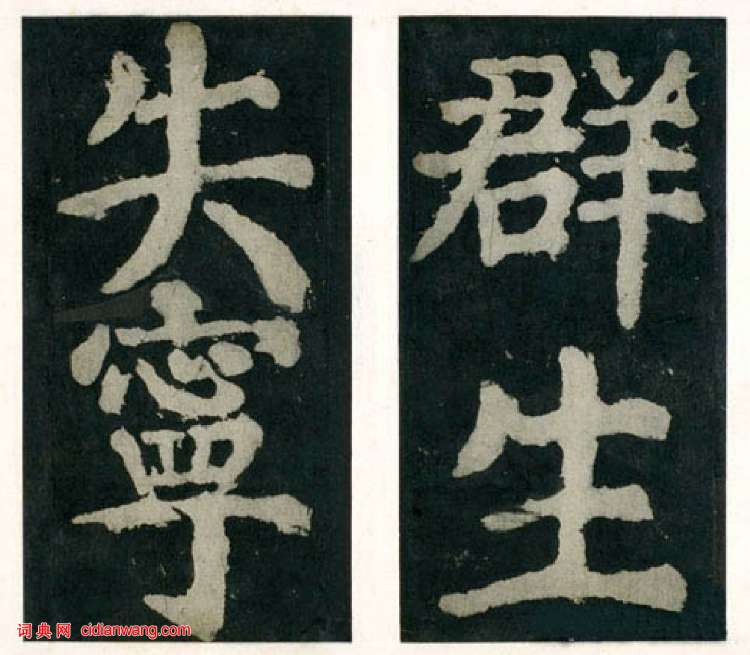 群生
失寧
词典网 cidianwang.com